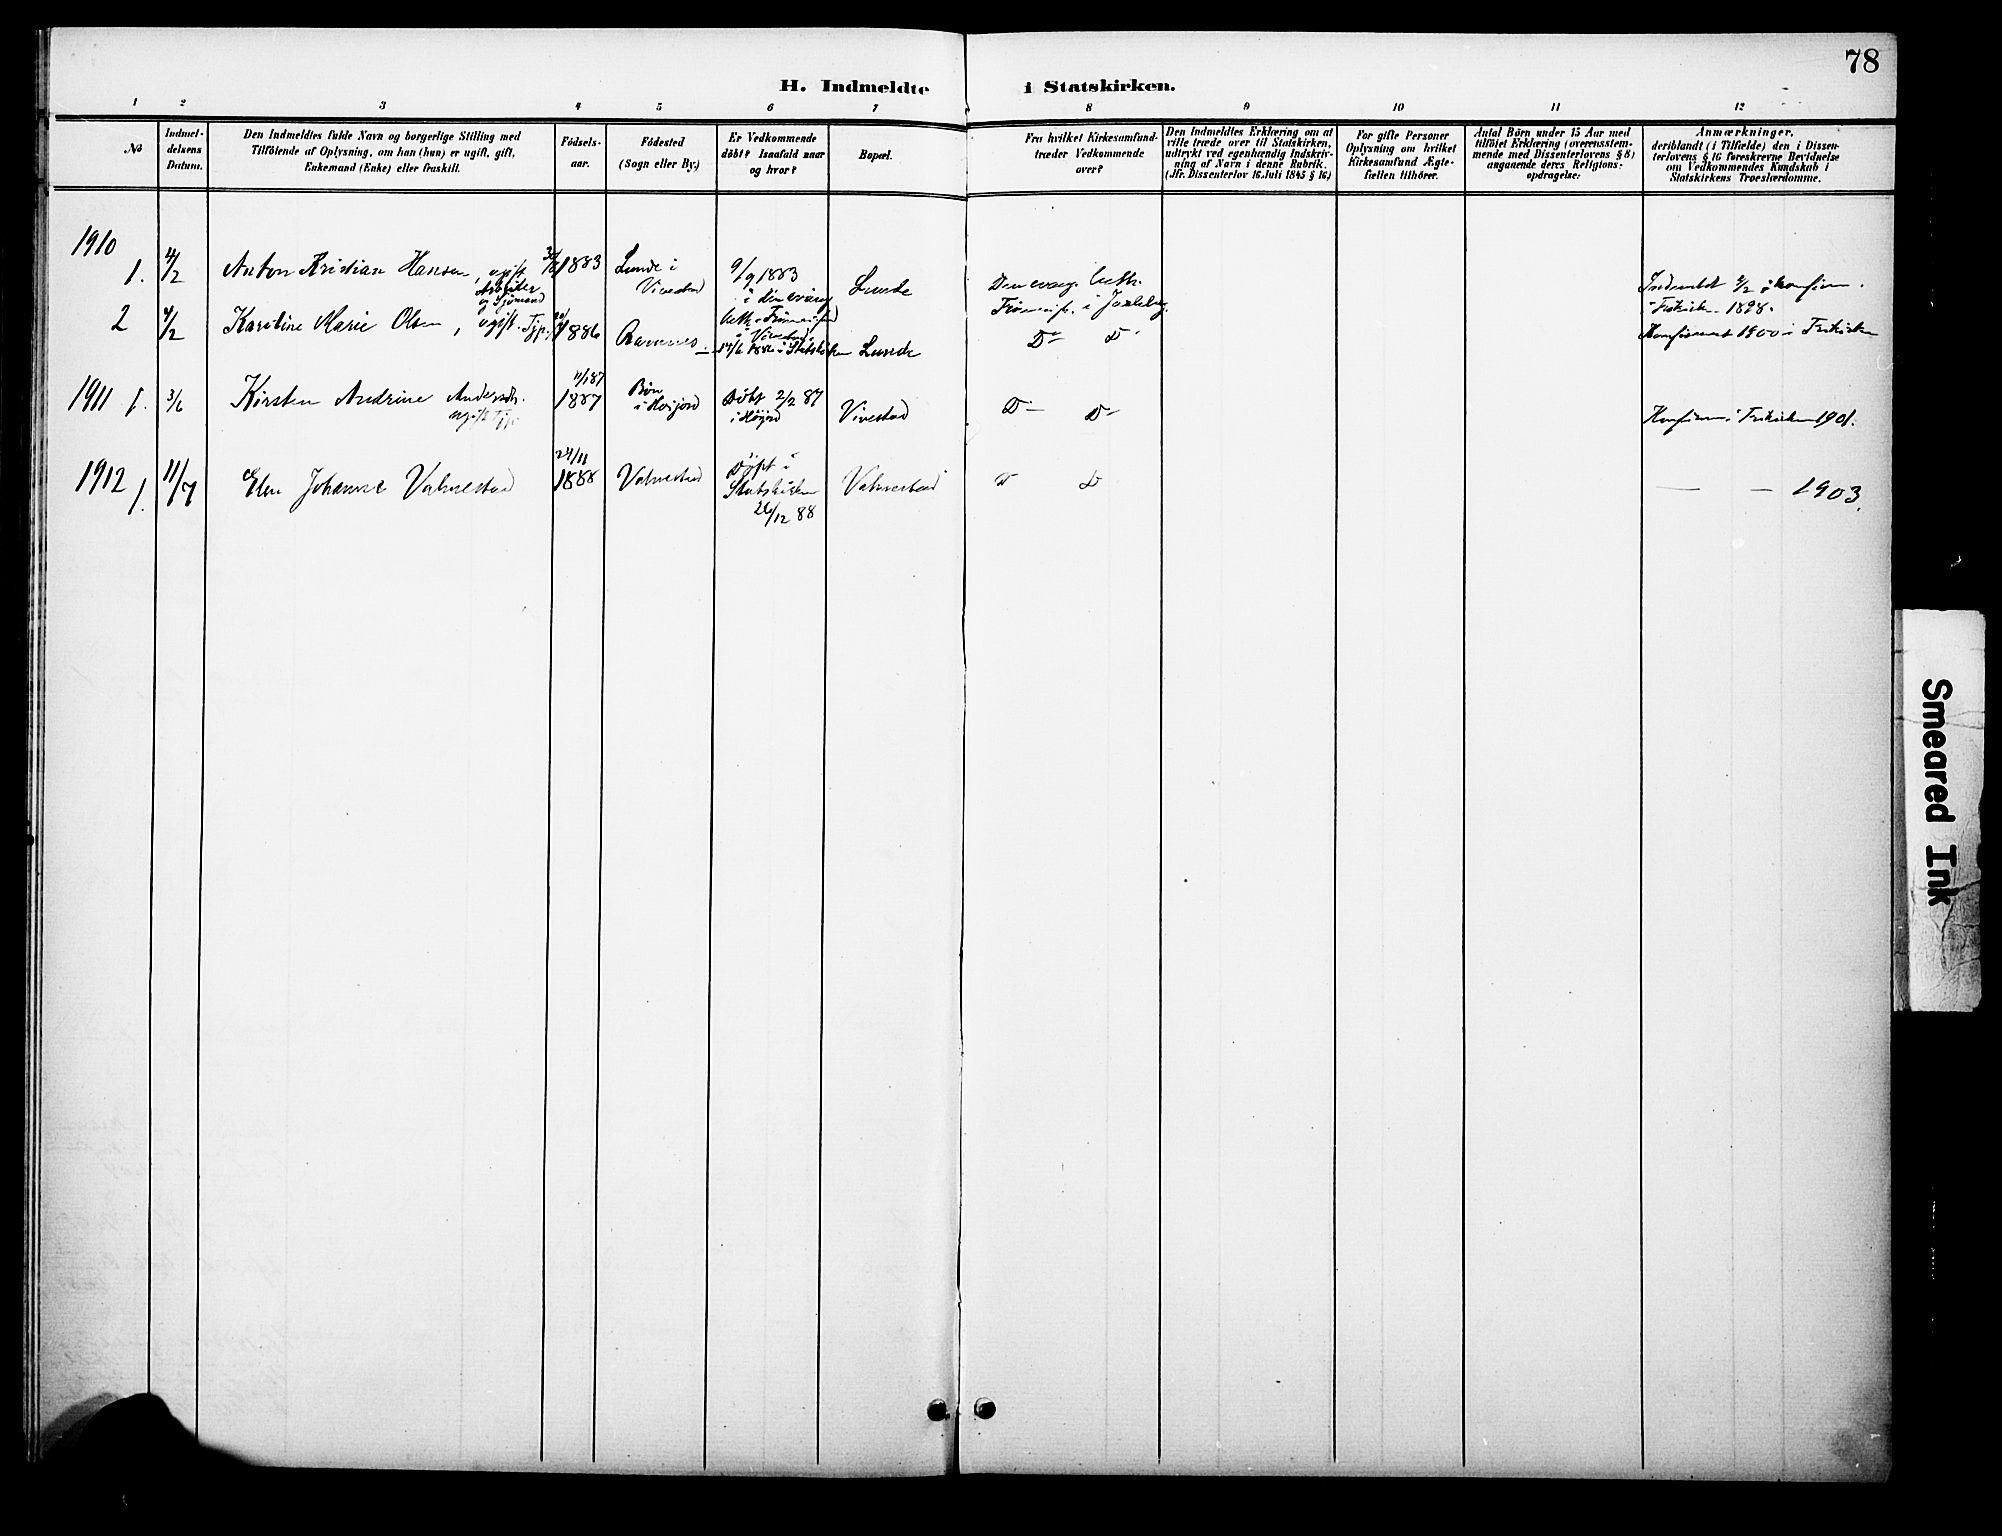 78
H. Indmeldte i Statskirken.
1 2 3 4 5 6 7 8 9 10 11 12
No
Indmel-
delsens
Datum.
Den Indmeldtes fulde Navn og borgerlige Stilling med
Tilföiende af Oplysning, om han (hun) er ugift, gift,
Enkemand (Enke) eller fraskilt.
Födsels-
aar.
Födested
(Sogn eller By.)
Er Vedkommende
döbt? Isaafald naar
og hvor?
Bopæl.
Fra hvilket Kirkesamfund
træder Vedkommende
over?
Den Indmeldtes Erklæring om at
ville træde over til Statskirken,
udtrykt ved egenhændig Indskriv-
ning af Navn i denne Rubrik.
(Jfr. Dissenterlov 16 Juli 1845 § 16)
For gifte Personer
Oplysning om hvilket
Kirkesamfund Ægte-
fællen tilhörer.
Antal Börn under 15 Aar med
tilföiet Erklæring (overensstem-
mende med Dissenterlovens § 8)
angaaende deres Religions-
opdragelse:
Anmærkninger,
deriblandt (i Tilfælde) den i Dissen-
terlovens § 16 foreskrevne Bevidnelse
om Vedkommendes Kundskab i
Statskirkens Troeslærdomme.
1910
1. 4/2 Anton Kristian Hansen, ugift.
Arbeider
og Sjömand
1883
Lunde i
Vivestad
9/9 1883
i den evang.
luth. Frimenighed
i Vivestad
Lunde
Den evang. luth.
Frimenigh. i Jarlsberg.
Indmeldt 4/2
i Frikirken 1898.
2 4/2 Karoline Marie Olsen, ugift. Tjp.
1886
Ramnes
i Statskirken
Lunde
Do Do
Konfirmert 1900 i Frikirken
1911 1. 3/6 Kirsten Andrine Andersdtr.
ugift Tjp.
11/1 87
1887
Bøn
i Høijord
Döbt 2/2 87
i Höijord
Vivestad
Do Do
Konfirm. i Frikirken 1901.
1912 1. 11/7 Elen Johanne Valmestad
1888
Valmestad
Döpt i
Statskirken
26/12 88
Valmestad
Do Do
— — 1903.
Smeared Ink